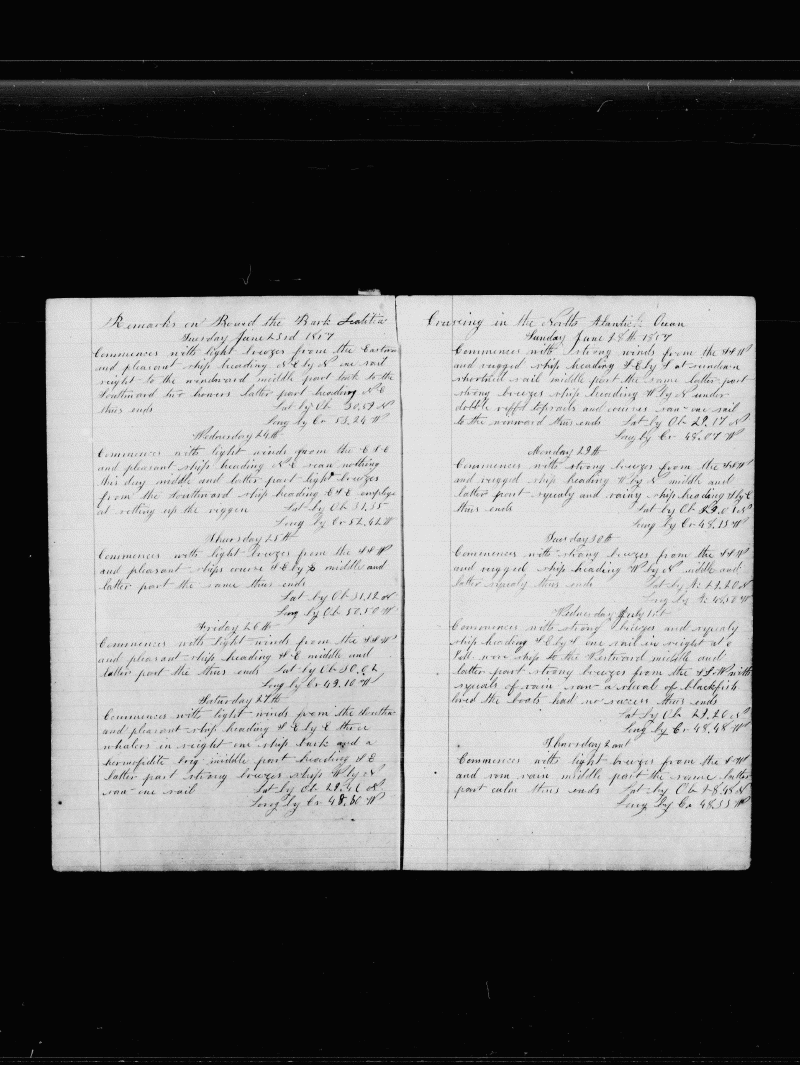 Remarks on Bourd the Bark Letitia
Tuesday June 23rd 1857
Commences with light breezes from the Eastward
and pleasant ship heading N E by N one sail
in sight to the windward middle part tack to the
Southward two hours latter part heading N E
thus ends Lat by Ob 30,59 N
Long by Cr 53,24 W
Wednesday 24th
Commences with light winds from the E S E
and pleasant ship heading N E sean nothing
this day middle and latter part light breezes
from the Southward ship heading E S E employed
at setting up the riggen Lat by Ob 31,35
Long by Cr 52,42 W
Thursday 25th
Commences with light breezes from the S S W
and pleasant ships course S E by S middle and
latter part the same thus ends
Lat by Ob 31,12 N
Long by Ob 50,50 W
Friday 26th
Commences with light winds from the S S W
and pleasant ship heading S E middle and
latter part the thus ends Lat by Ob 30,02
Long by Cr 49,10 W
Saturday 27th
Commences with light winds from the Southard
and pleasant ship heading S E by E three
whalers in sight one ship bark and a
hermofidite brig middle part heading S E
latter part strong breezes ship W by N
saw one sail Lat by Ob 29,41 N
Long by Cr 48,30 W
Cruising in the North Atlantick Ocean
Sunday June 28th 1857
Commences with strong winds from the S S W
and rugged ship heading S E by S at sundown
shortned sail middle part the same latter part
strong breezes ship heading W by N under
dobble reffd topsails and courses saw one sail
to the winward thus ends Lat by Ob 29,17 N
Long by Cr 48,07 W
Monday 29th
Commences with strong breezes from the S S W
and rugged ship heading W by N middle and
latter part squaly and rainy ship heading S by E
thus ends Lat by Ob 29,01 N
Long by Cr 48,15 W
Tuesday 30th
Commences with strong breezes from the S S W
and rugged ship heading W by N middle and
latter squaly thus ends Lat by A:
Long by A: 48,50 W
Wednesday July 1st
Commences with strong breezes and squaly
ship heading S E by S one sail in sight at 6
P.M. wore ship to the Westward middle and
latter part strong breezes from the S S W with
squals of rain saw a shoal of blackfish
lowed the boats had no success thus ends
Lat by Ob 29,26 N
Long by Cr 48,48 W
Thursday 2nd
Commences with light breezes from the S W
and som rain middle part the same latter
part calm thus ends Lat by Ob 28,48 N
Long by Cr 48,55 W